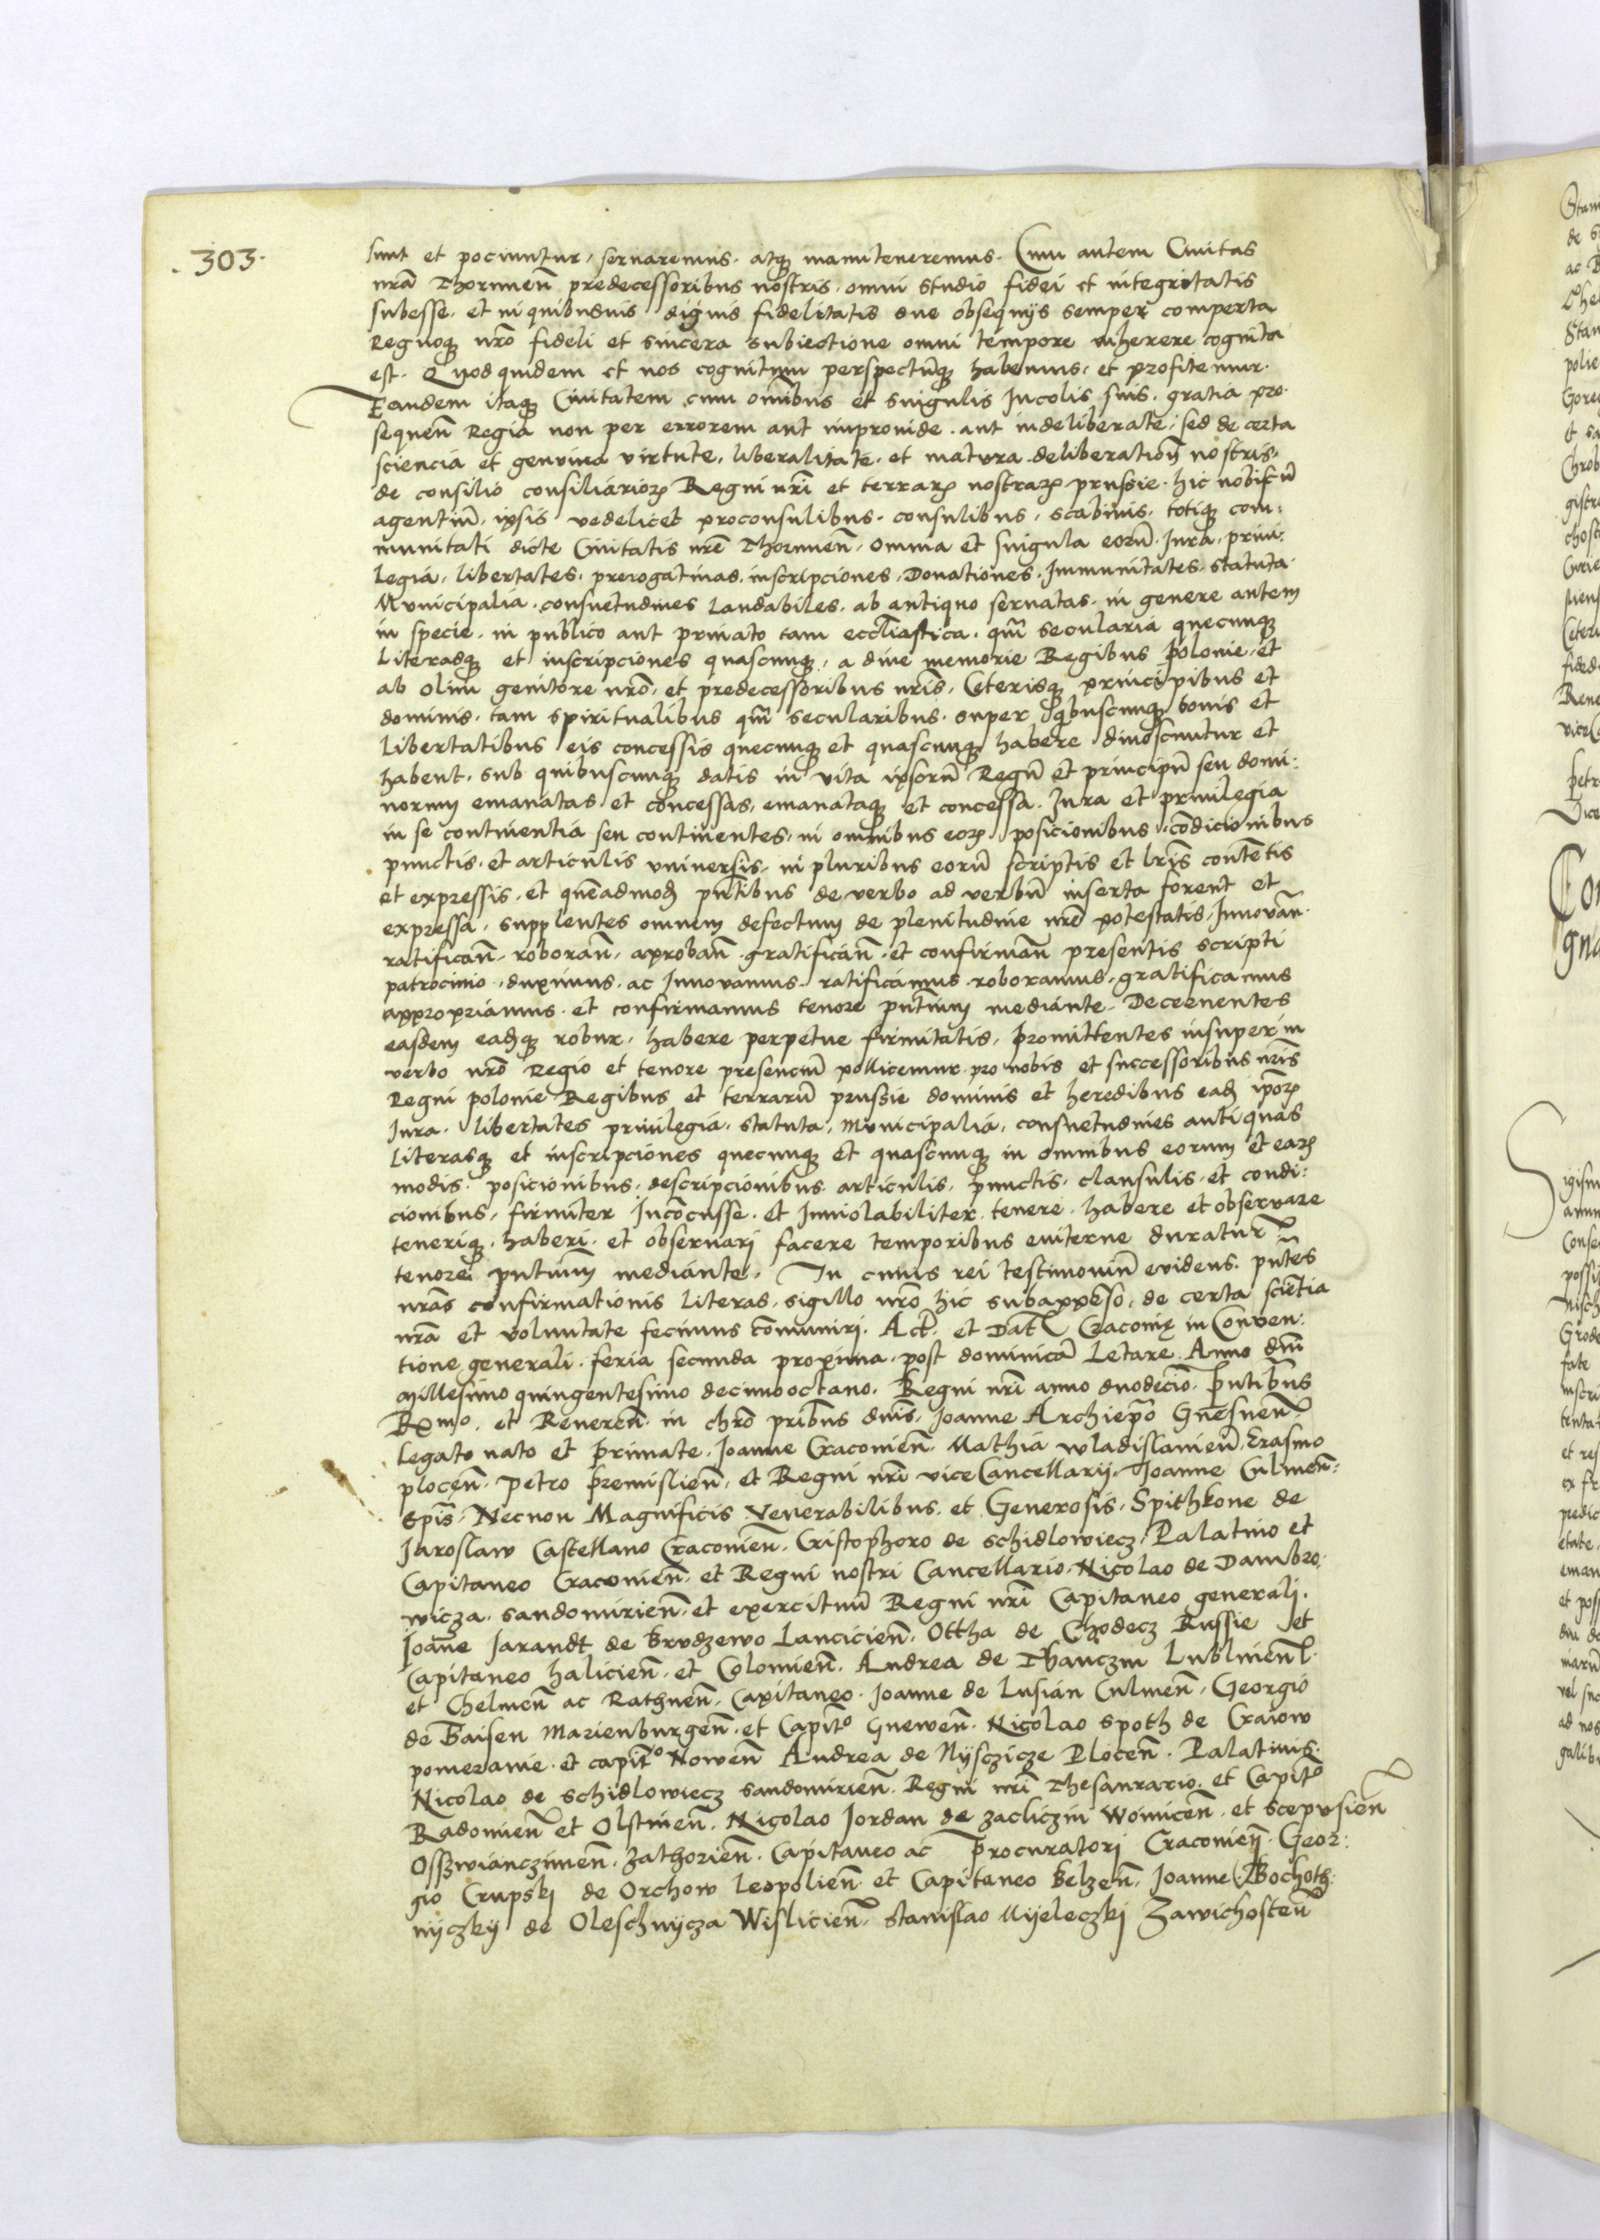 303
sunt et pociuntur, servaremus, atq̃ manuteneremus. Cum autem Civitas
nr̃a Thorunen̄ predecessoribus nostris, omni studio fidei et integritatis
subesse, et in quibusvis dignis fidelitatis sue obsequijs semper comperta
Regnoq̃ nr̃o fideli et sincera subiectione omni tempore inherere cognita
est. Quod quidem et nos cognitum perspectūq̃ habemus, et profitemur.
Eandem itaq̃ Civitatem cum omībus et singulis Incolis suis, gratia pro-
sequen̄ Regia non per errorem aut improvide, aut indeliberate, sed de certa
sciencia et genuina virtute, liberalitate, et matura deliberationē nostris,
de consilio consiliarioꝝ Regni nr̃i et terraꝝ nostraꝝ prussie, hic nobiscū
agentiū, ipsis vedelicet proconsulibus, consulibus, scabinis, totiq̃ com:
munitati dicte Civitatis nr̃e Thorunen̄, omnia et singula eorū Jura, privi:
legia, libertates, prerogativas, inscripciones, Donationes, Immunitates, statuta
Municipalia, consuetudines laudabiles, ab antiquo servatas, in genere autem
in specie, in publico aut privato tam eccl̃iastica, qm̄ secularia quecunq̃
Literasq̃ et inscripciones quascunq̃, a dive memorie Regibus Polonie, et
ab olim genitore nr̃o, et predecessoribus nr̃is, Ceterisq̃ principibus et
dominis, tam spiritualibus qm̄ secularibus, super qbuscunq̃ bonis et
Libertatibus eis concessis quecunq̃ et quascunq̃ habere dinoscuntur et
habent, sub quibuscunq̃ datis in vita ipsorū Regū et principū seu domi:
norum emanatas et concessas, emanataq̃ et concessa. Jura et privilegia
in se continentia seu continentes, in omnibus eoꝝ posicionibus, cōdicionibus
punctis, et articulis universis, in pluribus eorū scriptis et lr̃is contētis
et expressis, et quēadmodꝫ pn̄tibus de verbo ad verbū inserta forent et
expressa, supplentes omnem defectum de plenitudine nr̃e potestatis, Innovan̄
ratifican̄, roboran̄, aproban̄, gratifican̄, et confirman̄ presentis scripti
patrocinio, duximus, ac Innovamus, ratificamus, roboramus, gratificamus
appropriamus, et confirmamus tenore pn̄tium mediante. Decernentes
easdem eadꝫq̃ robur, habere perpetue firmitatis, Promittentes insuper in
verbo nr̃o Regio et tenore presenciū pollicemur pro nobis et successoribus nr̃is
Regni polonie Regibus et terrarū prussie dominis et heredibus eadꝫ ip̃oꝝ
Jura, libertates privilegia, statuta, Municipalia, consuetudines antiquas
Literasq̃ et inscripciones quecunq̃ et quascunq̃ in omnibus eorum et eaꝝ
modis, posicionibus, descripcionibus, articulis, punctis, clausulis, et condi:
cionibus, firmiter Incōcusse, et Inviolabiliter tenere, habere et observare
teneriq̃, haberi, et observari facere temporibus eviterne duratur̃
tenore pn̄tium mediante. In cuius rei testimoniū evidens, pn̄tes
nr̃as confirmationis literas, sigillo nr̃o hic subappēso, de certa sciētia
nr̃a et voluntate fecimus cōmuniri. Act̃ et Dat̃ Cracoviȩ in Conven:
tione generali, feria secunda proxima, post dominicā Letare. Anno dn̄i
Millesimo quingentesimo decimooctavo. Regni nr̃i anno duodecīo. Pn̄tibus
R̃mo et Reveren̄ in chrō pr̃ibus dn̄is, Joanne Archiep̃o Gnesnen̄
Legato nato et Primate, Joanne Cracovien̄, Mathia Wladislavien̄, Erasmo
plocen̄, Petro Premislien̄, et Regni nr̃i vice Cancellarij, Joanne Culmen̄:
Ep̃is, Necnon Magnificis Venerabilibus et Generosis, Spithkone de
Jaroslaw Castellano Cracovien̄, Cristophoro de Schidlowiecz, Palatino et
Capitaneo Cracovien̄ et Regni nostri Cancellario, Nicolao de Dambro:
wicza, sandomirien̄, et exercituū Regni nr̃i Capitaneo generali.
Joāne Jarandt de Brudzewo Lancicien̄, Ottha de Chodecz Russie et
Capitaneo halicien̄ et Colomien̄, Andrea de Thanczin Lublinen̄
et Chelmen̄ ac Rathnen̄, Capitaneo, Joanne de Lusian Culmen̄, Georgio
de Baisen Marienburgen̄ et Capit̃o Gnewen̄, Nicolao Spoth de Craiow
pomeranie et capit̃o Nowen̄ Andrea de Nysczicze Plocen̄, Palatinis.
Nicolao de Schidlowiecz sandomirien̄, Regni nr̃i Thesaurario, et Capit̃o
Radomien̄ et Olstinen̄, Nicolao Jordan de Zacliczin Woinicen̄, et Scepusien̄
Osswianczimen̄, Zathorien̄, Capitaneo ac Procuratori Cracovien̄, Geor:
gio Crupski de Orchow Leopolien̄ et Capitaneo Belzen̄, Joanne Bochoth:
nyczkij de Oleschnycza Wislicien̄, Stanislao Myeleczkj Zawichosten̄